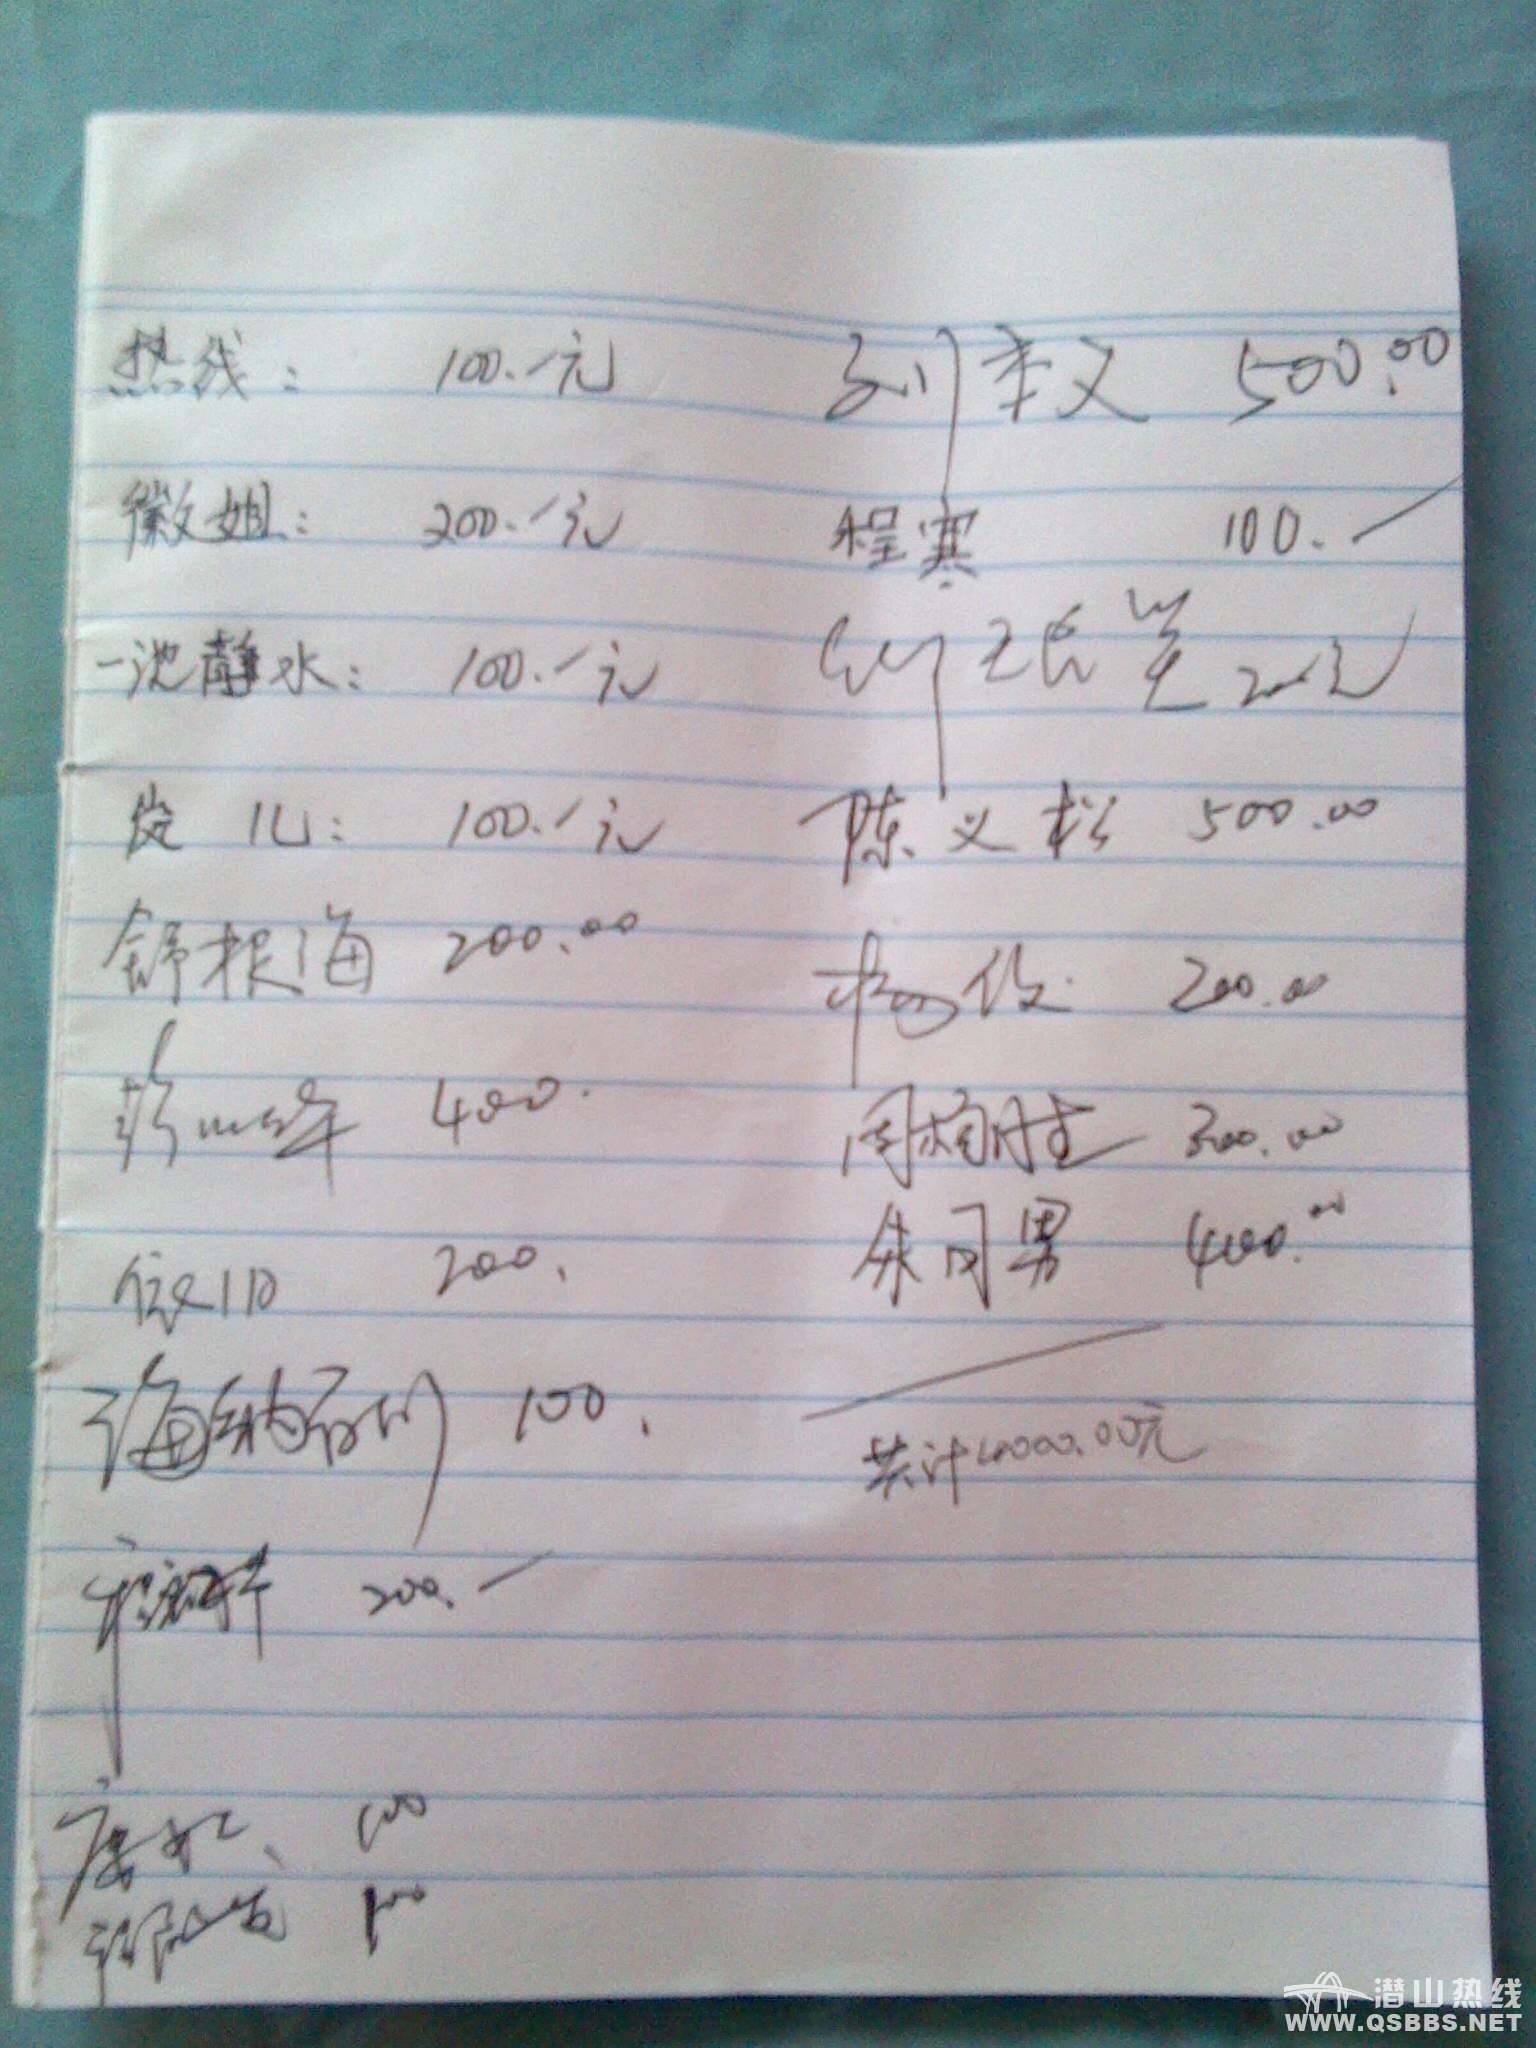 热线： 100.-元
徽姐： 200.-元
一池静水： 100.-元
儿： 100.-元
舒根海 200.00
400.
200.
海纳百川 100.
200.-
100
100
刘孝义 500.00
程寒 100.-
200元
陈义松 500.00
杨俊 200.00
周 胜 300.00
朱同男 400.00
共计4000.00元
潜山热线
WWW.QSBBS.NET